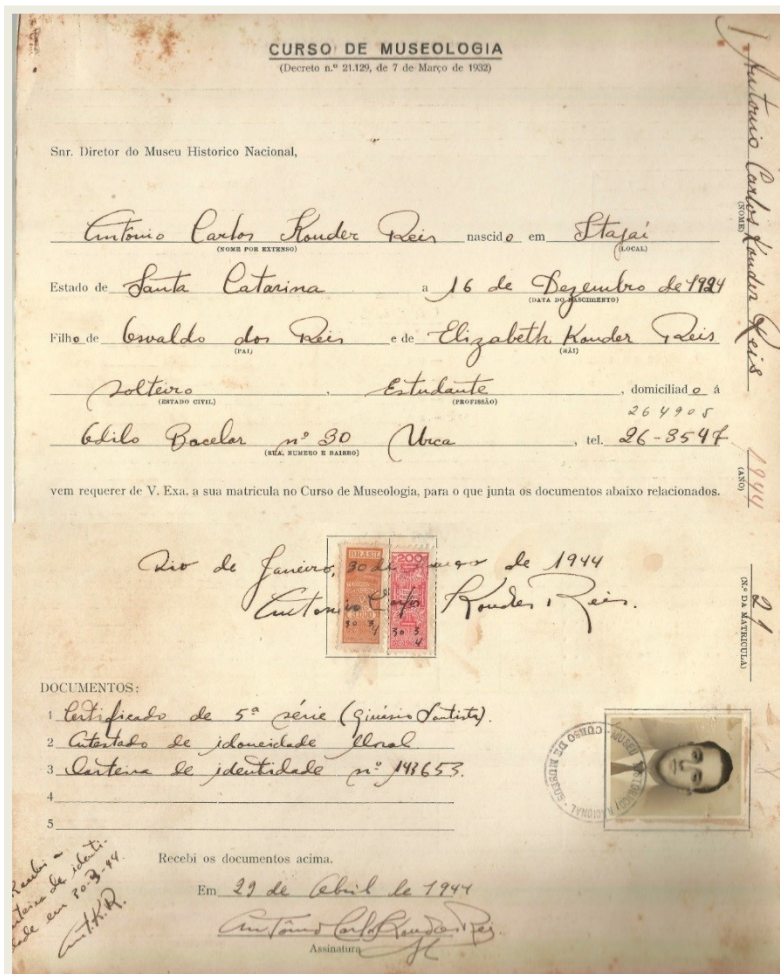 CURSO DE MUSEOLOGIA
(Decreto n.º 21.129, de 7 de Março de 1932)
Snr. Diretor do Museu Historico Nacional,
Antonio Carlos Konder Reis nascido em Itajaí
(NOME POR EXTENSO) (LOCAL)
Estado de Santa Catarina a 16 de Dezembro de 1924
(DATA DO NASCIMENTO)
Filho de Osvaldo dos Reis e de Elizabeth Konder Reis
(PAI) (MÃI)
solteiro, Estudante, domiciliado á
(ESTADO CIVIL) (PROFISSÃO)
264905
Odilo Bacelar nº 30 Urca, tel. 26-3547
(RUA, NUMERO E BAIRRO)
vem requerer de V. Exa. a sua matricula no Curso de Museologia, para o que junta os documentos abaixo relacionados.
BRASIL 200
Rio de Janeiro, 30 de março de 1944
Antonio Carlos Konder Reis.
30 3 4 30 3 4
DOCUMENTOS:
1 Certificado de 5ª série (Ginásio Santista).
2 Atestado de idoneidade Moral
3 Carteira de identidade nº 143653.
4
5
Recebi os documentos acima.
Em 29 de Abril de 1944
Antônio Carlos Konder Reis
Assinatura
Recebi a
carteira de identi-
dade em 30-3-44.
Ant. K. R.
Antonio Carlos Konder Reis
(NOME)
1944
(ANO)
21
(N.º DA MATRICULA)
CURSO DE MUSEUS